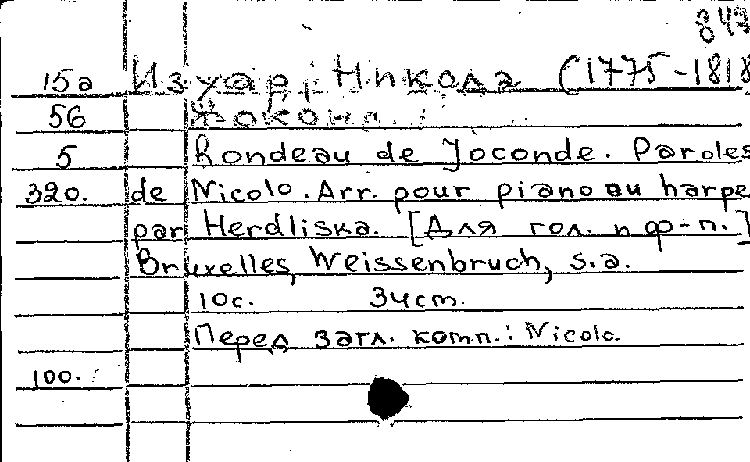 847
15а Изуар, Никола (1775-1818
56 Жоконд.
5 Rondeau de Joconde. Paroles
320. de Nicolo. Arr. pour piano ou harpe
par Herdliska. [Для гол. и ф-п.]
Bruxelles, Weissenbruch, s.a.
10с. 34cm.
Перед загл. комп.: Nicolo.
100.